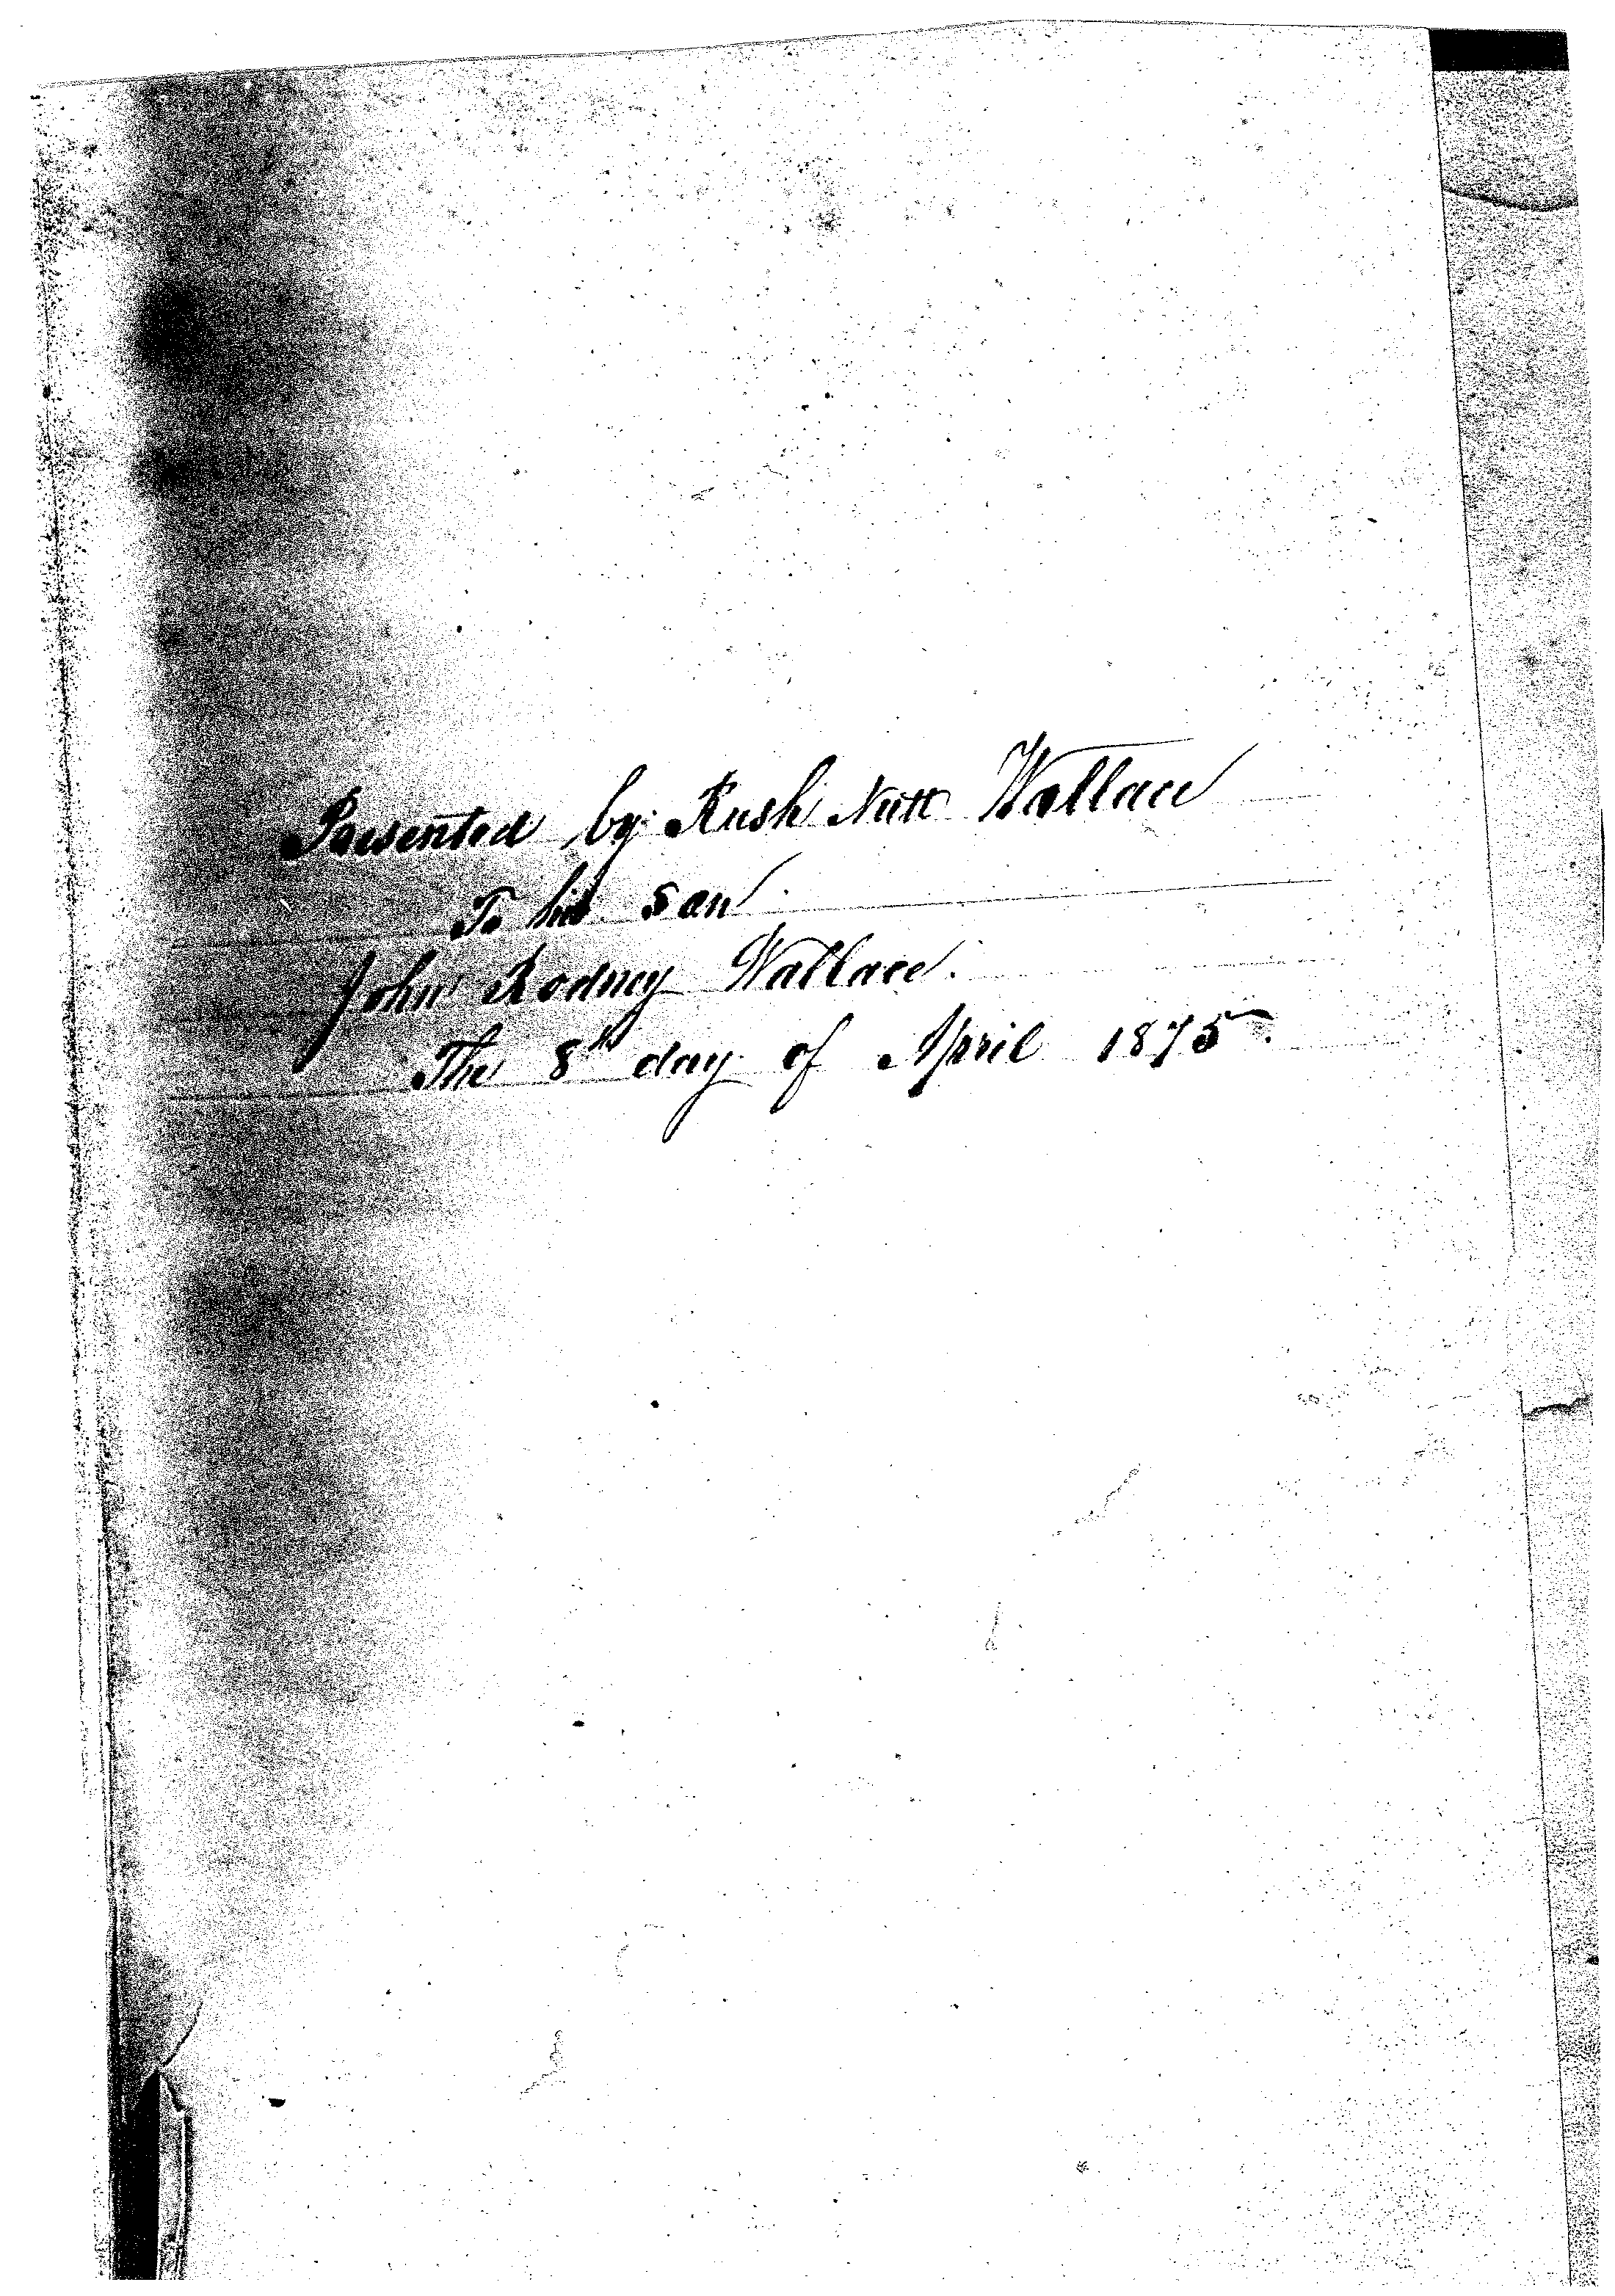 Presented by Rush Nutt Wallace
To his son
John Rodney Wallace.
The 8th day of April 1875.